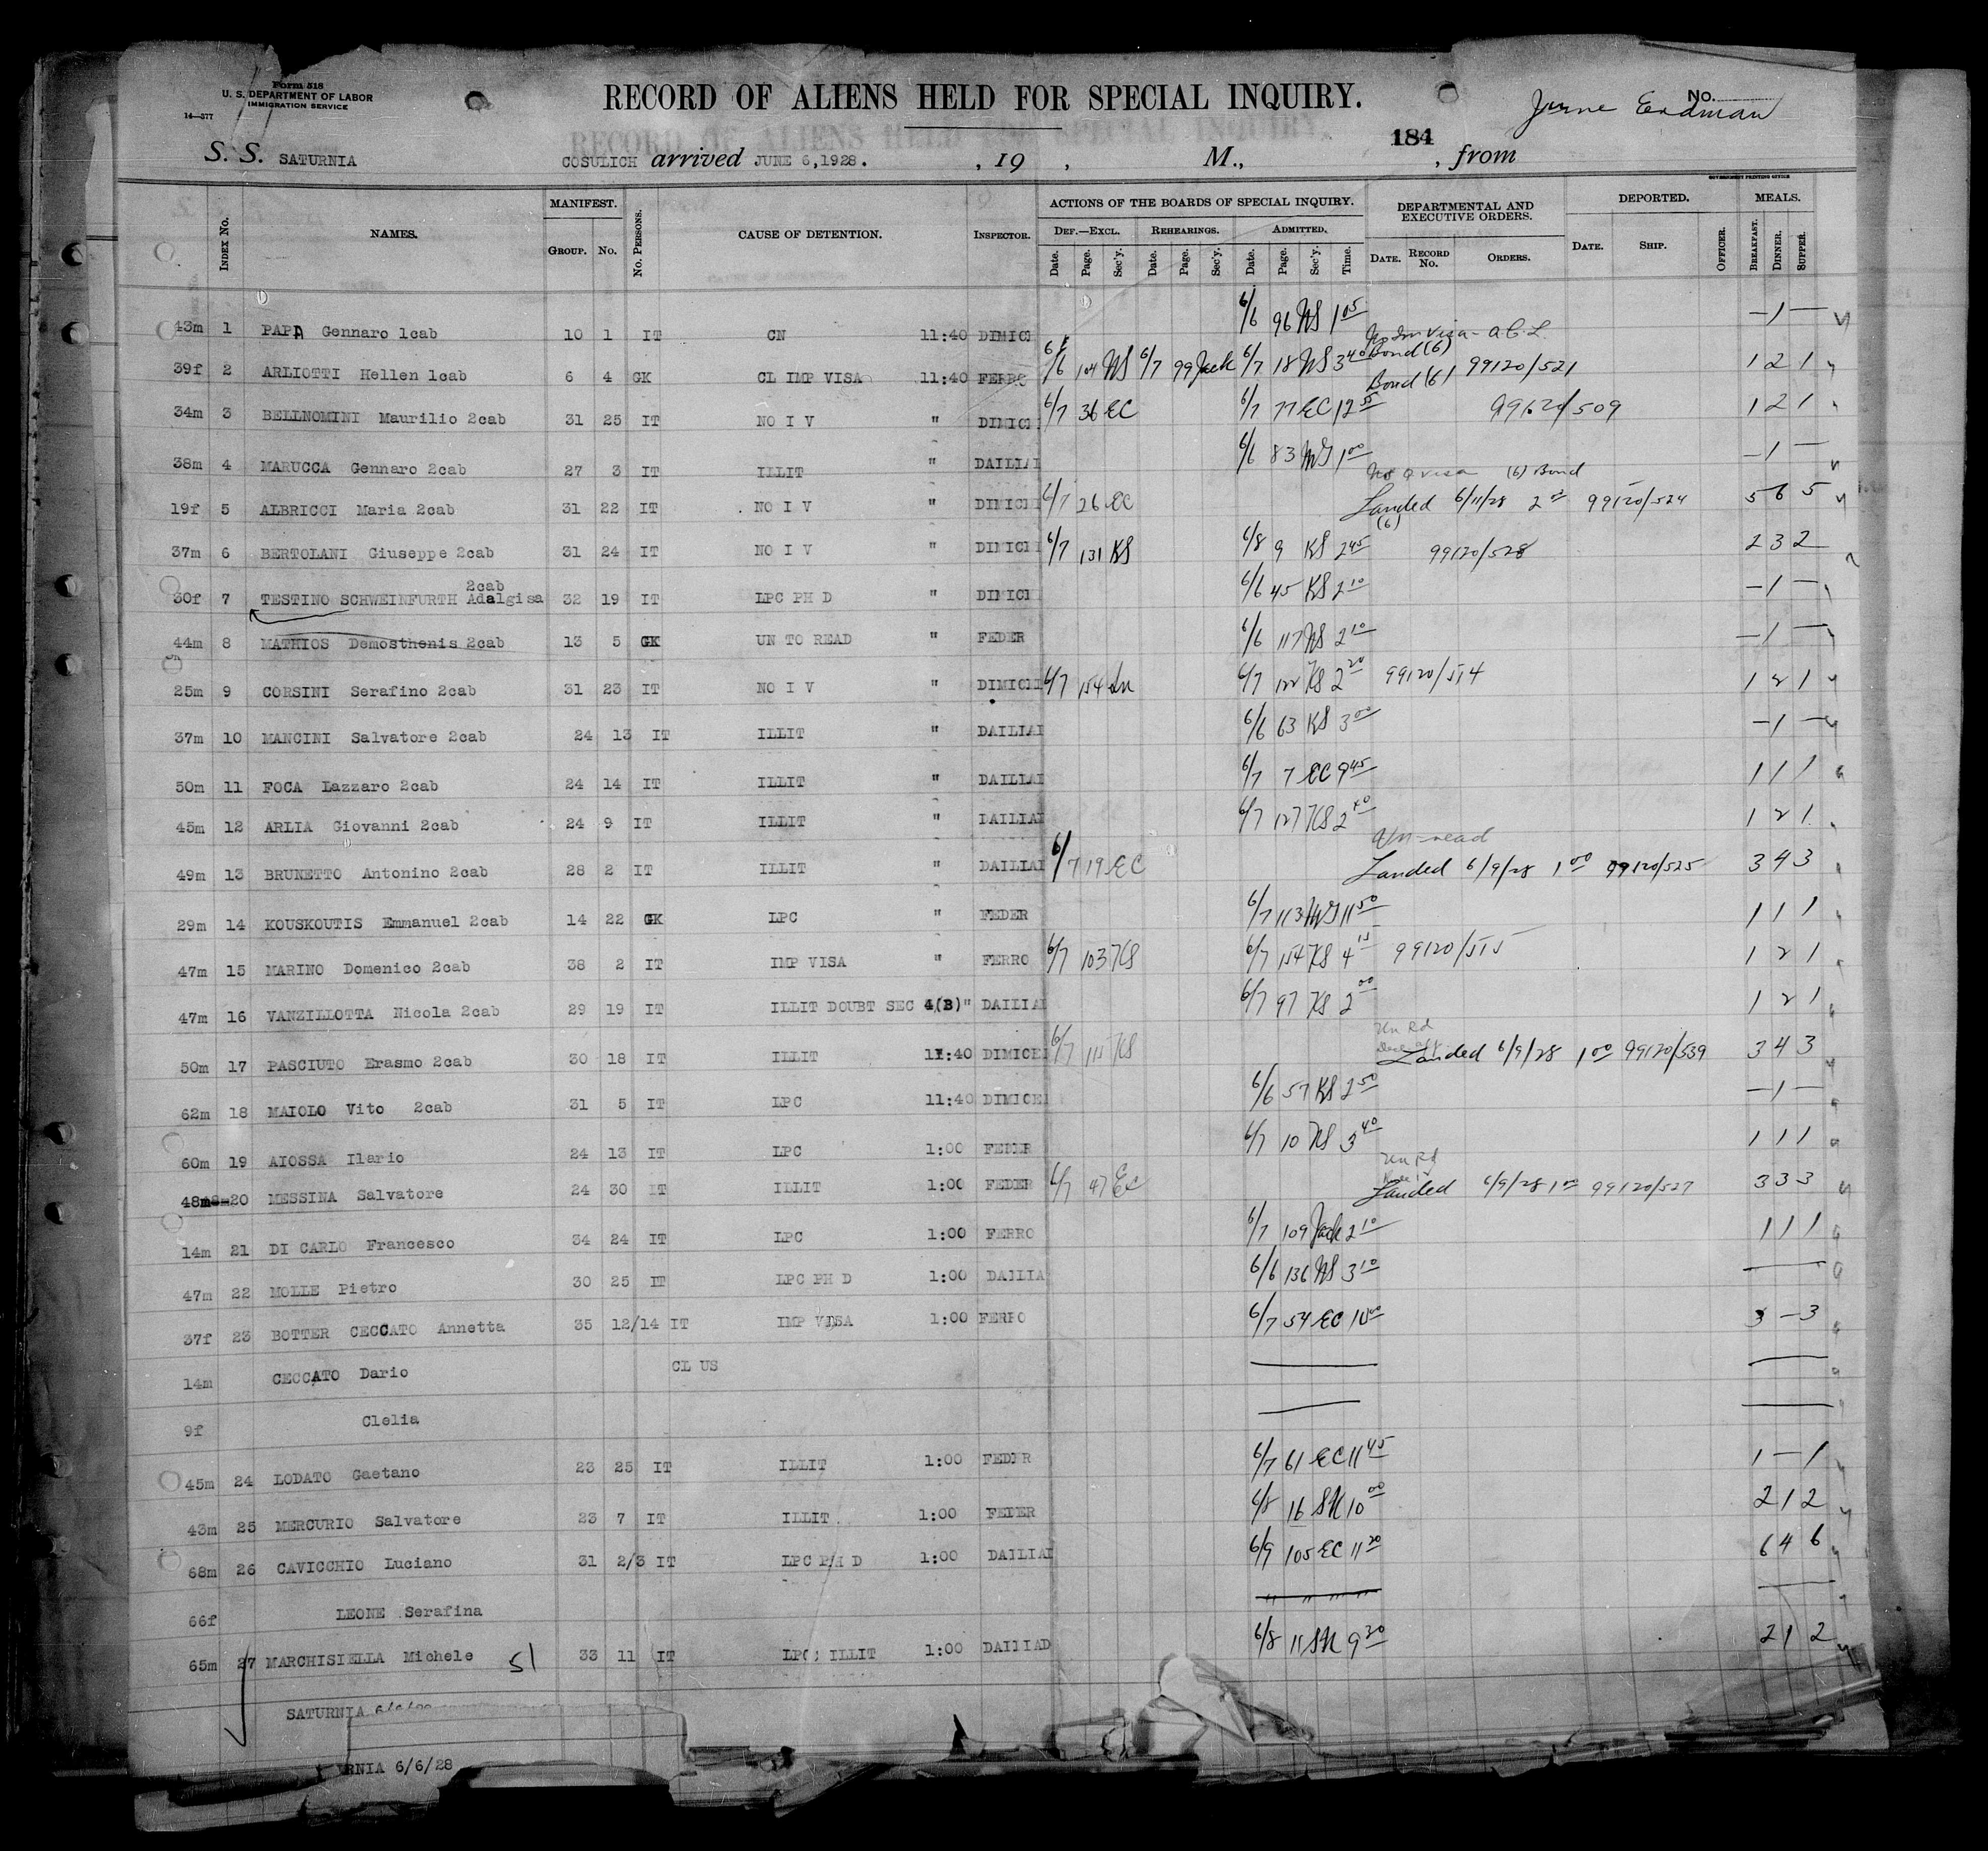 Form 518
U. S. DEPARTMENT OF LABOR
IMMIGRATION SERVICE
14—377
RECORD OF ALIENS HELD FOR SPECIAL INQUIRY.
No.
Erdman
184
S. S. SATURNIA COSULICH arrived JUNE 6,1928. , 19 , M., , from
GOVERNMENT PRINTING OFFICE
Index No. NAMES. MANIFEST. Group. No. No. Persons. CAUSE OF DETENTION. Inspector. ACTIONS OF THE BOARDS OF SPECIAL INQUIRY. DEPARTMENTAL AND EXECUTIVE ORDERS. DEPORTED. MEALS.
Def.—Excl. Rehearings. Admitted.
Date. Page. Sec'y. Date. Page. Sec'y. Date. Page. Sec'y. Time. Date. Record No. Orders. Date. Ship. Officer. Breakfast. Dinner. Supper.
43m 1 PAPA Gennaro 1cab 10 1 IT CN 11:40 DIMICI 6/6 96 NS 1 05 — 1 —
No Im Visa - a.C.L.
Bond (6)
39f 2 ARLIOTTI Hellen 1cab 6 4 GK CL IMP VISA 11:40 FERRO 6/6 104 NS 6/7 99 Jack 6/7 18 NS 3 40 99120/521 1 2 1
Bond (6)
34m 3 BELLNOMINI Maurilio 2cab 31 25 IT NO I V " DIMICI 6/7 36 EC 6/7 77 EC 12 55 99120/509 1 2 1
38m 4 MARUCCA Gennaro 2cab 27 3 IT ILLIT " DAILIAI 6/6 83 1 00 — 1 —
visa (6) Bond
19f 5 ALBRICCI Maria 2cab 31 22 IT NO I V " DIMICHI 6/7 26 EC Landed 6/11/28 2 99120/524 5 6 5
(6)
37m 6 BERTOLANI Giuseppe 2cab 31 24 IT NO I V " DIMICHI 6/7 131 KS 6/8 9 KS 2 45 99120/528 2 3 2
2cab
30f 7 TESTINO SCHWEINFURTH Adalgisa 32 19 IT LPC PH D " DIMICH 6/6 45 KS 2 10 — 1 —
44m 8 MATHIOS Demosthenis 2cab 13 5 GK UN TO READ " FEDER 6/6 117 NS 2 10 — 1 —
25m 9 CORSINI Serafino 2cab 31 23 IT NO I V " DIMICHI 6/7 154 6/7 122 KS 2 20 99120/514 1 2 1
37m 10 MANCINI Salvatore 2cab 24 13 IT ILLIT " DAILIAI 6/6 63 KS 3 00 — 1 —
50m 11 FOCA Lazzaro 2cab 24 14 IT ILLIT " DAILIAI 6/7 7 EC 9 45 1 1 1
45m 12 ARLIA Giovanni 2cab 24 9 IT ILLIT " DAILIAI 6/7 127 KS 2 40 1 2 1
Un-read
49m 13 BRUNETTO Antonino 2cab 28 2 IT ILLIT " DAILIAI 6/7 19 EC Landed 6/9/28 1 00 99120/525 3 4 3
29m 14 KOUSKOUTIS Emmanuel 2cab 14 22 GK LPC " FEDER 6/7 113 11 50 1 1 1
47m 15 MARINO Domenico 2cab 38 2 IT IMP VISA " FERRO 6/7 103 KS 6/7 154 KS 4 15 99120/515 1 2 1
47m 16 VANZILLOTTA Nicola 2cab 29 19 IT ILLIT DOUBT SEC 4(B)" DAILIAI 6/7 97 KS 2 00 1 2 1
Un Rd
50m 17 PASCIUTO Erasmo 2cab 30 18 IT ILLIT 11:40 DIMICEI 6/7 115 KS Landed 6/9/28 1 00 99120/539 3 4 3
62m 18 MAIOLO Vito 2cab 31 5 IT LPC 11:40 DIMICEI 6/6 57 KS 2 50 — 1 —
60m 19 AIOSSA Ilario 24 13 IT LPC 1:00 FEDER 6/7 10 NS 3 40 1 1 1
Un Rd
48m 20 MESSINA Salvatore 24 30 IT ILLIT 1:00 FEDER 6/7 47 EC Landed 6/9/28 1 00 99120/527 3 3 3
14m 21 DI CARLO Francesco 34 24 IT LPC 1:00 FERRO 6/7 109 Jack 2 10 1 1 1
47m 22 MOLLE Pietro 30 25 IT LPC PH D 1:00 DAILIA 6/6 136 NS 3 10
37f 23 BOTTER CECCATO Annetta 35 12/14 IT IMP VISA 1:00 FERRO 6/7 54 EC 10 00 3 — 3
14m CECCATO Dario CL US
9f Clelia
45m 24 LODATO Gaetano 23 25 IT ILLIT 1:00 FEDER 6/7 61 EC 11 45 1 — 1
43m 25 MERCURIO Salvatore 23 7 IT ILLIT 1:00 FEDER 6/8 16 SK 10 00 2 1 2
68m 26 CAVICCHIO Luciano 31 2/3 IT LPC PH D 1:00 DAILIAI 6/9 105 EC 11 20 6 4 6
66f LEONE Serafina
65m 27 MARCHISIELLA Michele 51 33 11 IT LPC; ILLIT 1:00 DAILIAD 6/8 11 SK 9 20 2 1 2
SATURNIA 6/6/28
RNIA 6/6/28